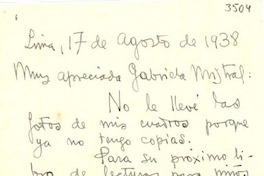 3504
Lima, 17 de agosto de 1938
Muy apreciada Gabriela Mistral:
No le llevé las
fotos de mis cuadros porque
ya no tengo copias.
Para su proximo li-
bro de lecturas para niños